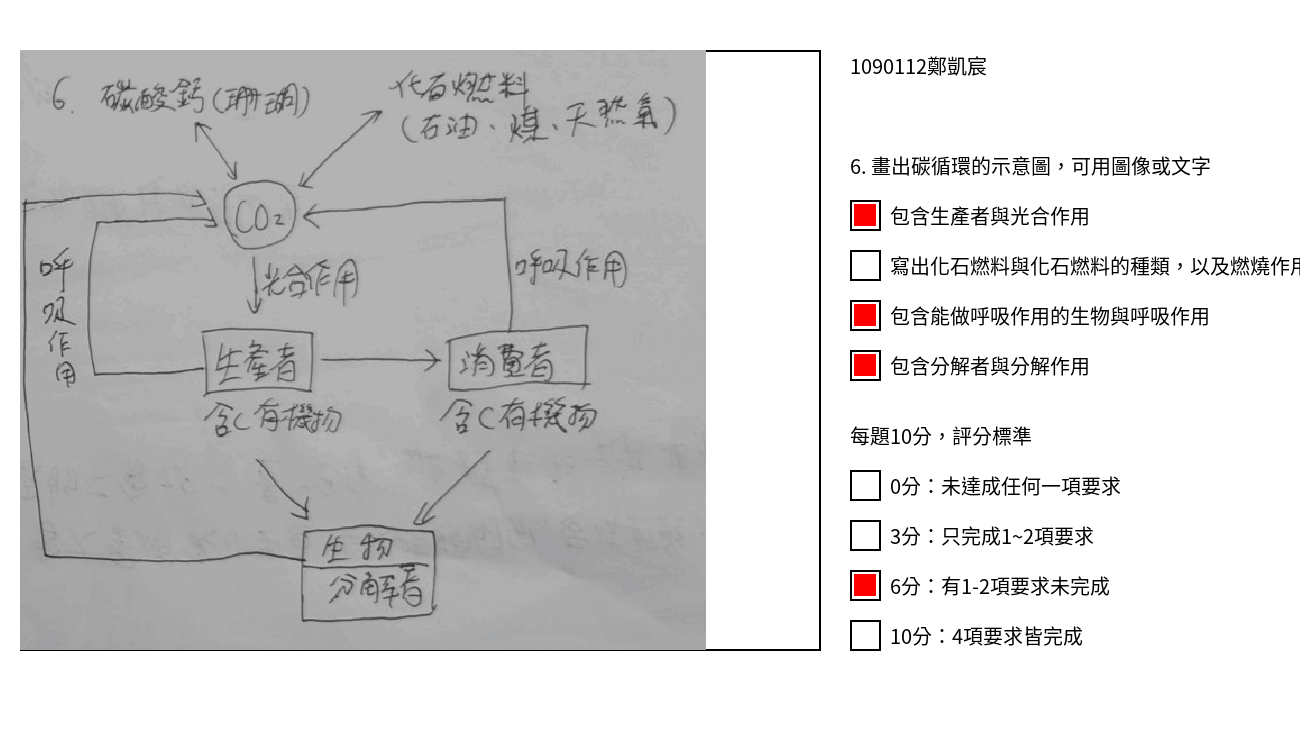 6. 碳酸鈣(珊瑚)
化石燃料
(石油、煤、天然氣)
CO₂
呼吸作用
光合作用
呼吸作用
生產者
消費者
含C有機物
含C有機物
生物
分解者
1090112鄭凱宸
6. 畫出碳循環的示意圖，可用圖像或文字
包含生產者與光合作用
寫出化石燃料與化石燃料的種類，以及燃燒作用
包含能做呼吸作用的生物與呼吸作用
包含分解者與分解作用
每題10分，評分標準
0分：未達成任何一項要求
3分：只完成1~2項要求
6分：有1-2項要求未完成
10分：4項要求皆完成